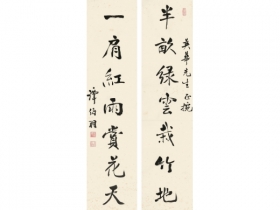 半畝綠雲栽竹地
英華先生正腕
一肩紅雨賞花天
譚伯羽